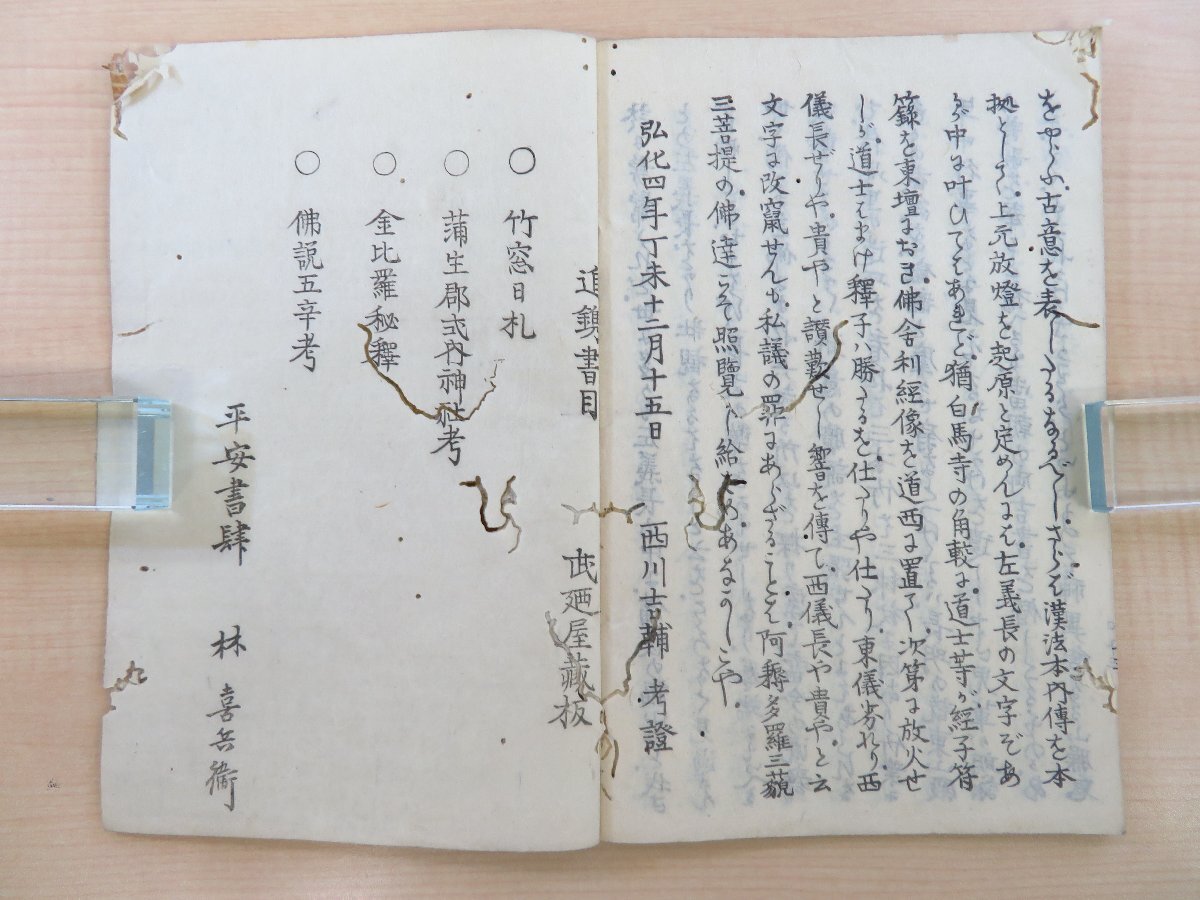 古意を表したるなるべし。さらば漢法本内傳を本
拠として。上元放燈を起原と定めんには。左義長の文字ぞあ
が中に叶ひてはあれど。猶白馬寺の角較に。道士等が経子符
籙を東壇におき。佛舎利経像を道西に置て。次第に放火せ
しが。道士はまけ釋子ハ勝たるを。仕たりや仕たり。東儀劣れり。西
儀長ぜりや。貴やと讃歎せし響を傳て。西儀長や貴やと云
文字に改竄せんも。私議の罪にあらざることは。阿耨多羅三藐
三菩提の佛達こそ照覧し給
弘化四年丁未十二月十五日 西川吉輔 考證
追鐫書目 廼屋蔵板
○ 竹窓日札
○ 蒲生郡式内神社考
○ 金比羅秘釋
○ 佛説五辛考
平安書肆 林 喜兵衛